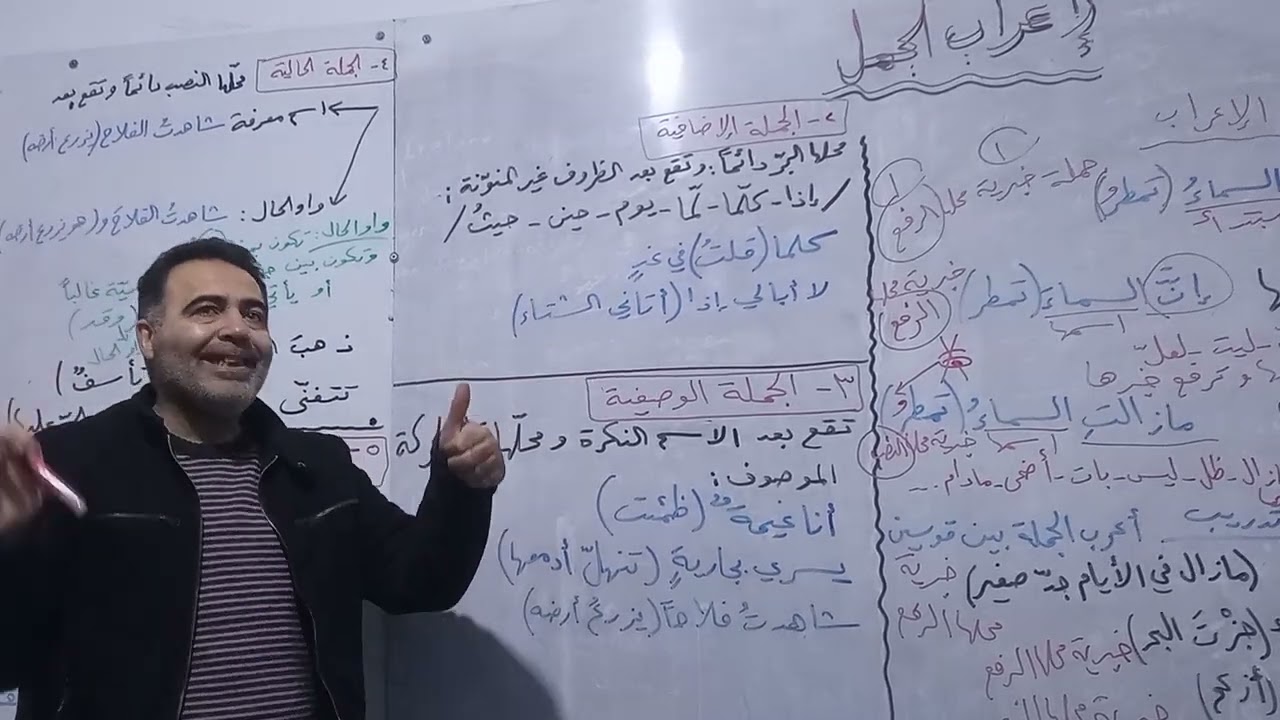 إعراب الجمل
الإعراب
١
السماءُ (تمطرُ) جملة خبرية محلها الرفع
مبتدأ
إنّ السماءَ (تمطر) خبرية محلها الرفع
اسمها
ليت - لعلّ
وترفع خبرها
مازالتِ السماءُ (تمطرُ)
اسمها خبرية محلها النصب
مازال - ظل - ليس - بات - أضحى - مادام ...
تدريب أعرب الجملة بين قوسين
(مازال في الأيام جدّ صغير) خبرية
محلها الرفع
(جزْتَ البحر) خبرية محلها الرفع
(أزرع)
٢- الجملة الإضافية
محلها الجرّ دائماً: وتقع بعد الظروف غير المنوّنة:
/إذا - كلّما - لمّا - يوم - حين - حيثُ/
كلما (قلتُ) في غدٍ
لا أبالي إذا (أتاني الشتاء)
٣- الجملة الوصفية
تقع بعد الاسم النكرة ومحلها
الموصوف:
أنا غيمةٌ (ظمئت)
يسري بجاريةٍ (تنهلّ أدمعها)
شاهدتُ فلاحاً (يزرعُ أرضه)
٤- الجملة الحالية
محلها النصب دائماً وتقع بعد
اسم معرفة شاهدتُ الفلاح (يزرع أرضه)
واو الحال: شاهدتُ الفلاحَ و(هو يزرع أرضه)
واو الحال: تكون
وتكون بين
أو يأتي غالباً
(وقد)
ذهبَ
الحال
تتغنّى
٥-